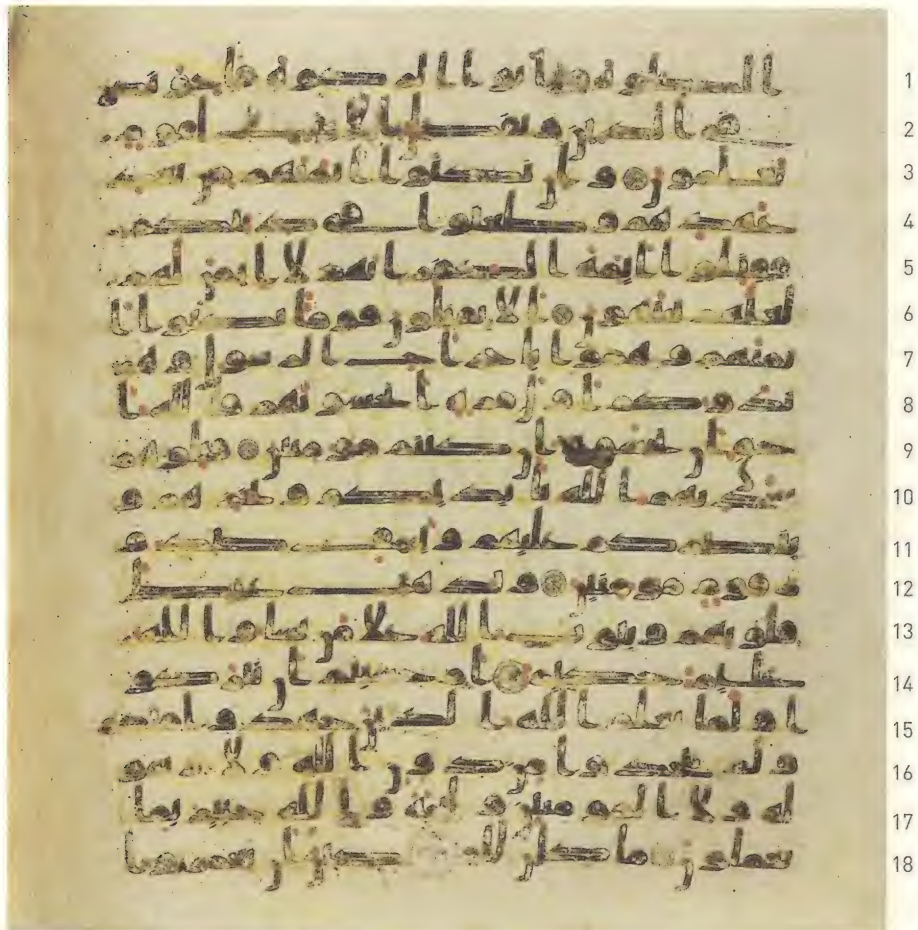 ا الصلوة واتوا الزكوة فاخونكم 1
في الدين ونفصل الايت لقوم 2
يعلمون وان نكثوا ايمنهم من بعد 3
عهدهم وطعنوا في دينكم 4
فقتلوا ائمة الكفر انهم لا ايمن لهم 5
لعلهم ينتهون الا تقتلون قوما نكثوا ا 6
يمنهم وهموا باخراج الرسول وهم 7
بدوكم اول مرة اتخشونهم فالله ا 8
حق ان تخشوه ان كنتم مومنين قتلوهم 9
يعذبهم الله بايديكم ويخزهم و 10
ينصركم عليهم ويشف صدو 11
ر قوم مومنين ويذهب غيظ 12
قلوبهم ويتوب الله على من يشا والله 13
عليم حكيم ام حسبتم ان تتركو 14
ا ولما يعلم الله الذين جهدوا منكم 15
ولم يتخذوا من دون الله ولا رسو 16
له ولا المومنين وليجة والله خبير بما 17
تعملون ما كان للمشركين ان يعمروا 18